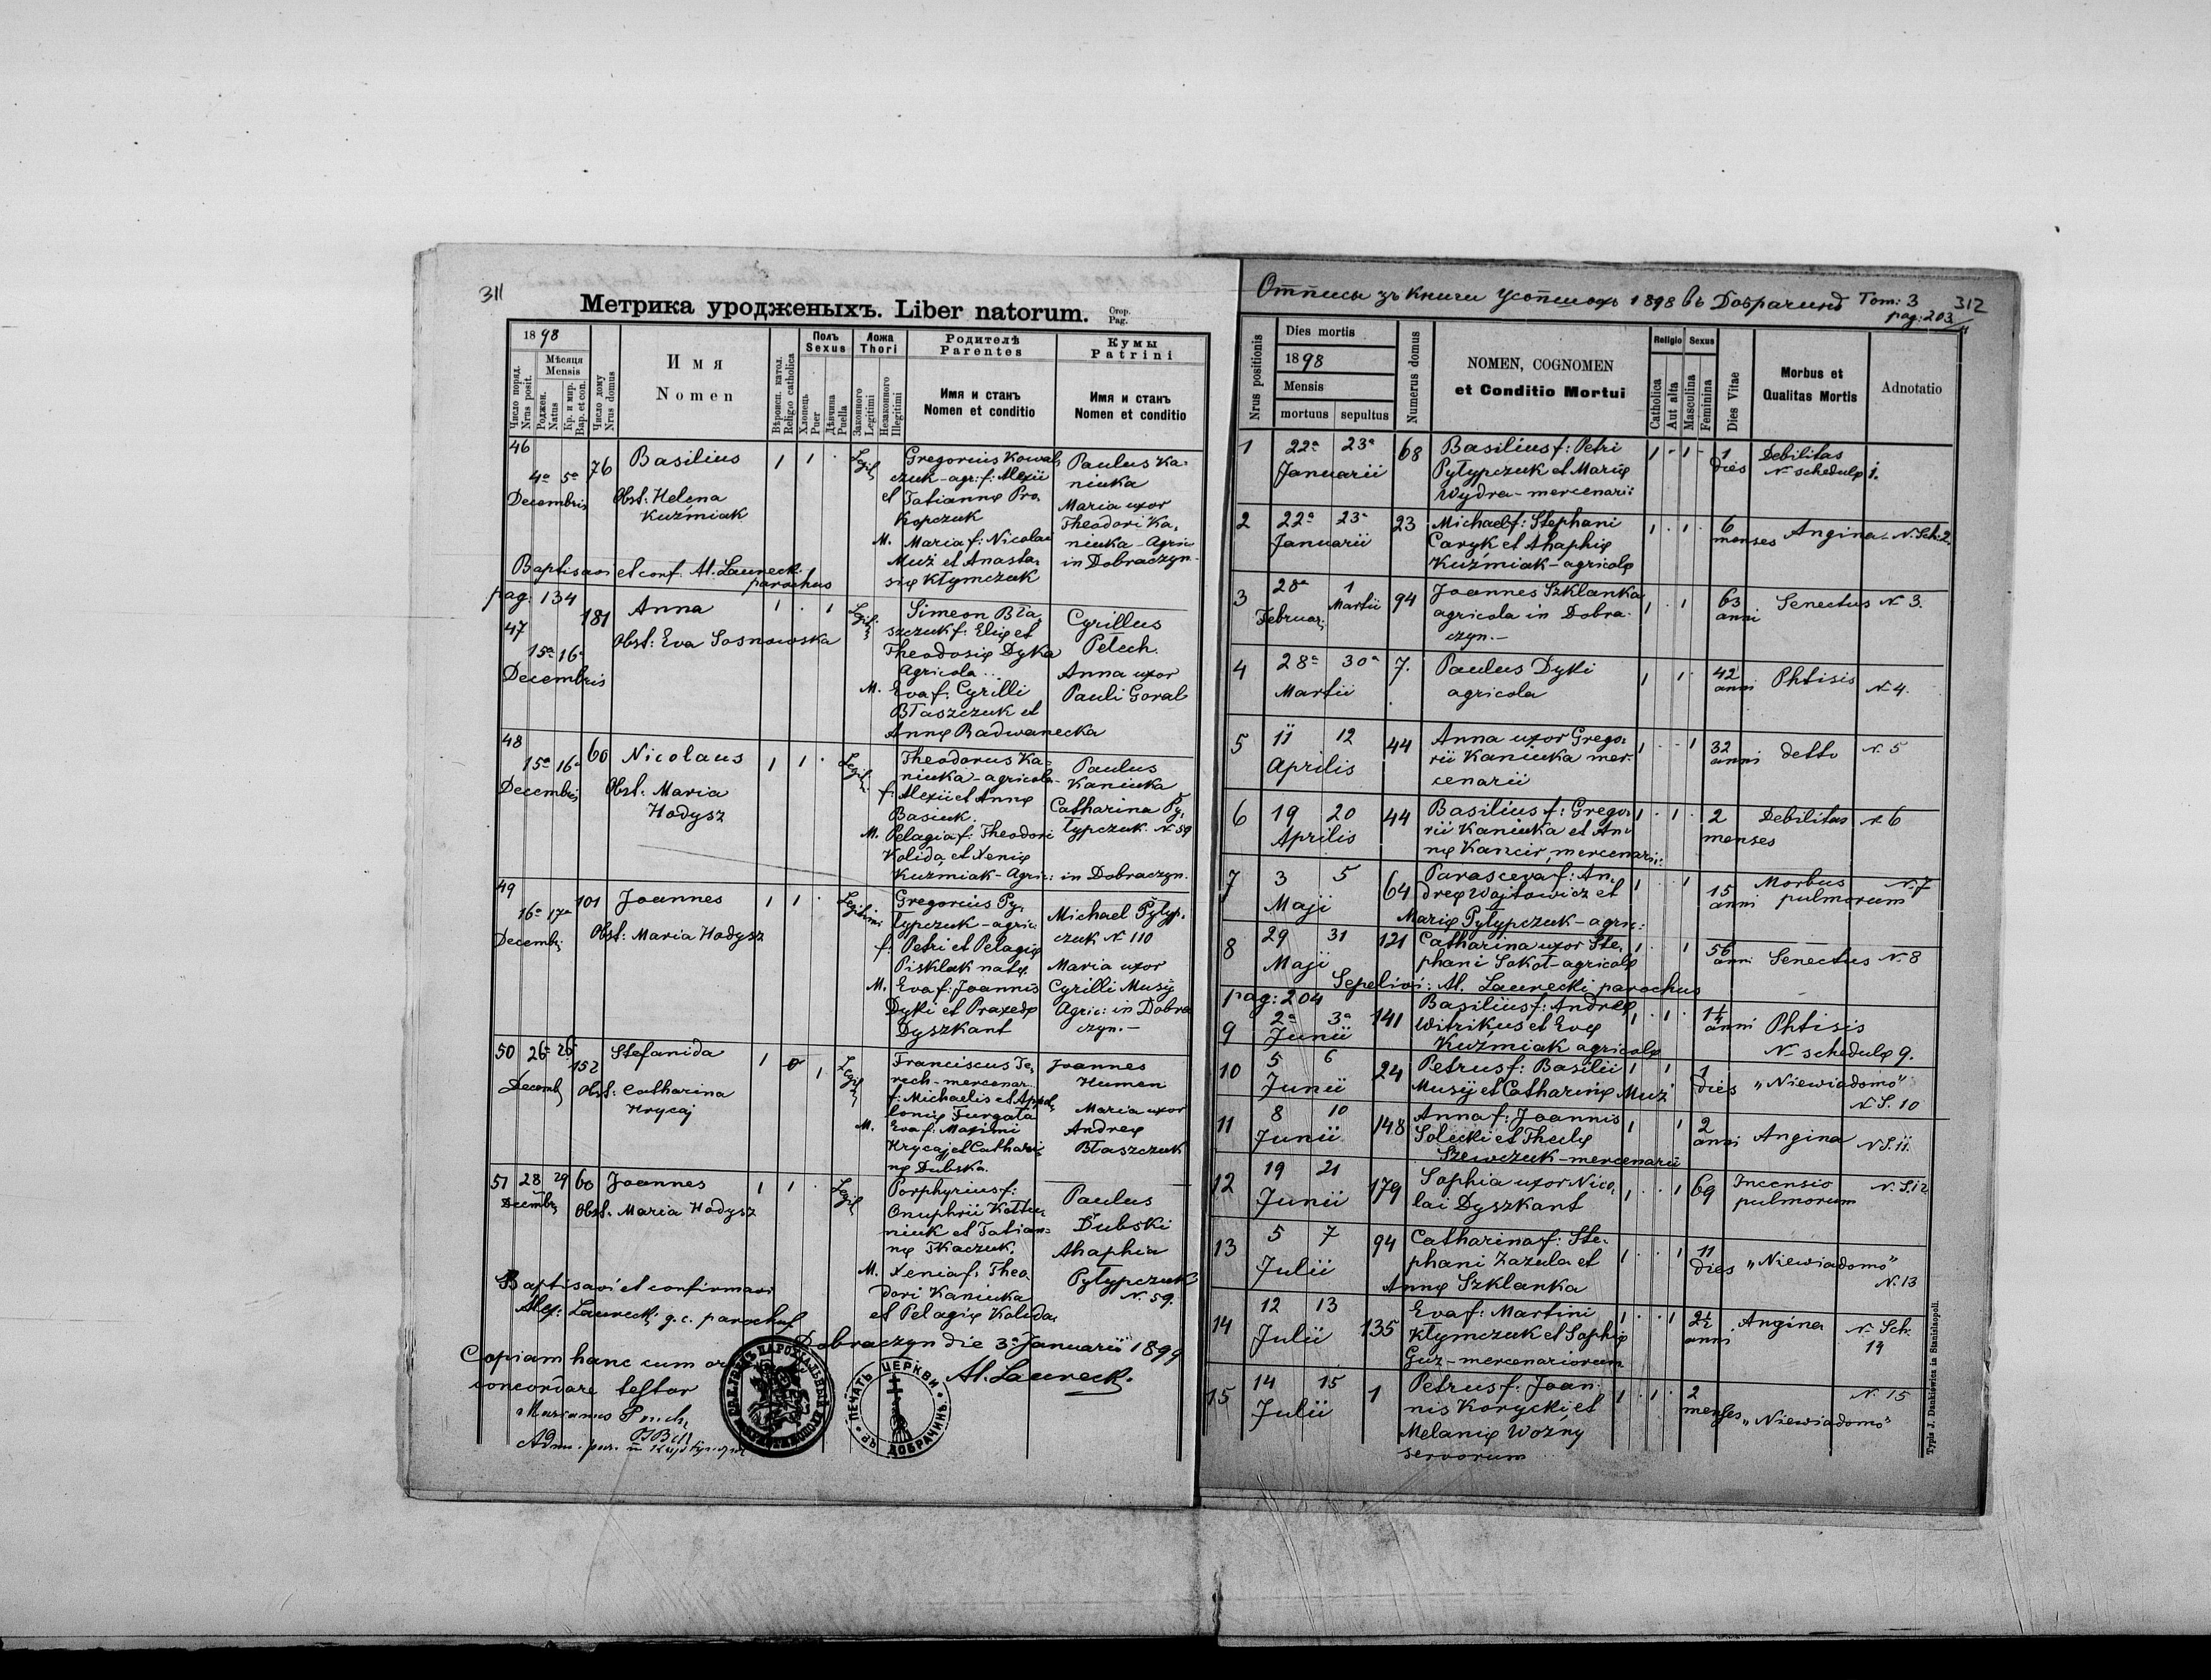 311
Метрика уродженыхъ. Liber natorum.
Стор.
Pag.
1898
Число поряд.
Nrus posit.
Мѣсяця
Mensis
Роджен.
Natus
Кр. и мир.
Bap. et con.
Число дому
Nrus domus
Имя
Nomen
Вѣроисп. катол.
Religio catholica
Полъ
Sexus
Хлопець
Puer
Дѣвчина
Puella
Ложа
Thori
Законного
Legitimi
Незаконного
Illegitimi
Родителѣ
Parentes
Имя и станъ
Nomen et conditio
Кумы
Patrini
Имя и станъ
Nomen et conditio
46
4a 5a 76 Basilius 1 1 · Legit
Decembris
Obst: Helena
Kuźmiak
Gregorius Kowal,
czuk - agr: f: Alexii
et Tatiannę Pro,
kopczuk
M. Maria f: Nicolai
Muż et Anasta,
się Kłymczuk
Paulus Ka,
niuka
Maria uxor
Theodori Ka,
niuka - Agric
in Dobraczyn -
Baptisavi et conf. Al. Laurecki
parochus
pag: 134
47
181 Anna 1 · 1 Legit
15a 16a
Decembris
Obst: Eva Sosnowska
Simeon Bła,
szczuk f: Elię et
Theodosię Dyka
Agricola
M. Eva f: Cyrilli
Błaszczuk et
Annę Radwanecka
Cyrillus
Petech.
Anna uxor
Pauli Goral
48
15a 16a 60 Nicolaus 1 1 · Legit
Decembris
Obst: Maria
Hodysz
Theodorus Ka,
niuka - agricola
f: Alexii et Annę
Basiuk.
M. Pelagia f: Theodori
Kolida et Xenię
Kuźmiak - Agric: in Dobraczyn.
Paulus
Kaniuka
Catharina Py,
łypczuk. N. 59
49
16a 17a 101 Joannes 1 1 · Legitimi
Decembr:
Obst: Maria Hodysz
Gregorius Py,
łypczuk - agric:
f: Petri et Pelagię
Pisklak natę.
M. Eva f: Joannis
Dyki et Praxedę
Dyszkant
Michael Pyłyp,
czuk N 110
Maria uxor
Cyrilli Musij
Agric: in Dobra
czyn. -
50 26a 26a 152 Stefanida 1 · 1 Legit
Decemb
Obst: Catharina
Hrycaj
Franciscus Te,
rech - mercenar.
f: Michaelis et Appol,
lonię Furgała
M. Eva f: Maximi
Hrycaj et Cathari,
nę Dubska.
Joannes
Humen
Maria uxor
Andreę
Błaszczuk
51 28 29 60 Joannes 1 1 · Legit
Decembr
Obst: Maria Hodysz
Porphyrius f:
Onuphrii Kottu,
niuk et Tatian,
nę Tkaczuk.
M. Xenia f: Theo,
dori Kaniuka
et Pelagię Kolida
Paulus
Dubski
Ahaphia
Pyłypczuk
N. 59.
Baptisavi et confirmavi
Alex. Laurecki g. c. parochus
Dobraczyn die 3a Januarii 1899
Al. Laurecki.
Copiam hanc cum or
concordare testor
Marianus
ПЕЧАТЬ ЦЕРКВИ ВЪ ДОБРАЧИНѢ
Отписы зъ Книги Усопшихъ 1898 въ Добрачинѣ Tom: 3
pag: 203
312
Nrus positionis
Dies mortis
1898
Mensis
mortuus
sepultus
Numerus domus
NOMEN, COGNOMEN
et Conditio Mortui
Religio
Catholica
Aut alta
Sexus
Masculina
Feminina
Dies Vitae
Morbus et
Qualitas Mortis
Adnotatio
1 22a 23a 68 Basilius f: Petri
Januarii
Pyłypczuk et Marię
Wydra - mercenarii
1 - 1 - 1
dies
Debilitas
N schedulę 1.
2 22a 23a 23 Michael f: Stephani
Januarii
Caryk et Ahaphię
Kuźmiak - agricolę
1 · 1 · 6
menses Angina - N. Sch: 2.
3 28a 1 94 Joannes Szklanka
Februar: Martii
agricola in Dobra,
czyn. -
1 · 1 63
anni Senectus N 3.
4 28a 30a 7. Paulus Dyki
Martii
agricola
1 1 · 42
anni Phtisis N 4.
5 11 12 44 Anna uxor Grego,
Aprilis
rii Kaniuka mer,
cenarii
1 · · 1 32
anni detto N. 5
6 19 20 44 Basilius f: Grego,
Aprilis
rii Kaniuka et An,
nę Kancir, mercenarii:
1 · 1 · 2
menses Debilitas N 6
7 3 5 64 Parasceva f: An,
Maji
dreę Wojtowicz et
Marię Pyłypczuk - agric:
1 1 15
anni Morbus
pulmorum N. 7
8 29 31 121 Catharina uxor Ste,
Maji
phani Sokoł - agricolę
1 · 1 56
anni Senectus N. 8
Sepelivi: Al. Laurecki parochus
pag: 204
9 2a 3a 141 Basilius f: Andreę
Junii
Witrikus et Evę
Kuźmiak agricolę
1 · 1 · 1½
anni Phtisis
N schedulę 9.
10 5 6 24 Petrus f: Basilii
Junii
Musij et Catharinę Muż
1 1 1
dies "Niewiadomo"
N S. 10
11 8 10 148 Anna f: Joannis
Junii
Solecki et Theclę
Szewczuk - mercenarii
1 1 2
anni Angina N S. 11.
12 19 21 179 Sophia uxor Nico,
Junii
lai Dyszkant
1 · · 1 69 Incensio
pulmorum N. S. 12
13 5 7 94 Catharina f: Ste,
Julii
phani Zazula et
Annę Szklanka
1 · · 1 11
dies "Niewiadomo"
N. 13
14 12 13 135 Eva f: Martini
Julii
Kłymczuk et Sophię
Guz - mercenariorum
1 · · 1 2½
anni Angina N. Sch.
14
15 14 15 1 Petrus f: Joan,
Julii
nis Korycki et
Melanię Woźny
servorum
1 · 1 · 2
menses "Niewiadomo"
N. 15
Typis J. Dankiewicz in Stanislaopoli.